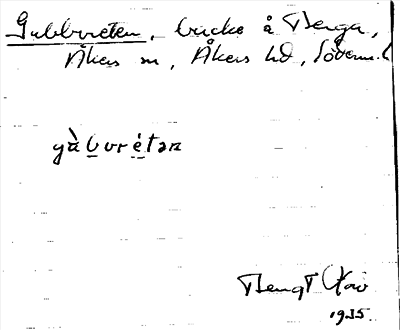 Gubbvreten, backe å Berga,
Åkers sn, Åkers hd, Söderm. l
gàbvrétan
Bengt
1935.